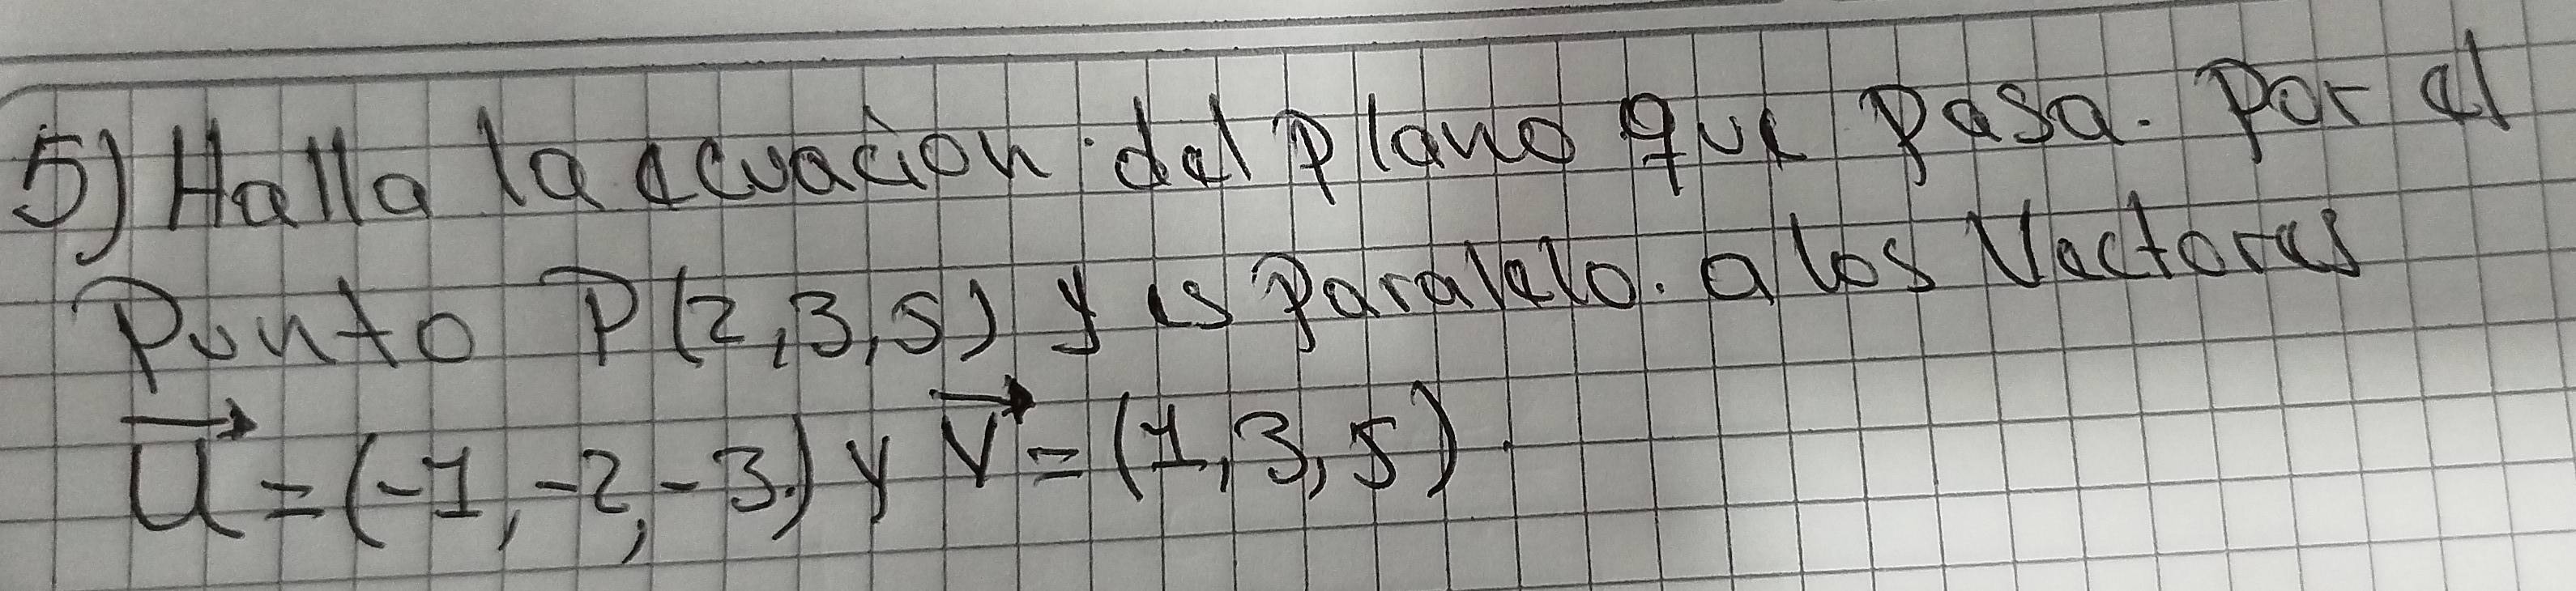 5) Halla la ecuación del plano que pasa. Por el
Punto P(2,3,5) y es Paralelo. a los Vectores
u⃗ = (-1, -2, -3) y v⃗ = (1, 3, 5).